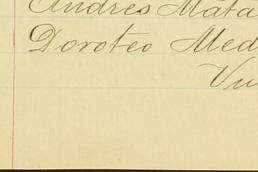 Andres Mata
Doroteo Med
Vu